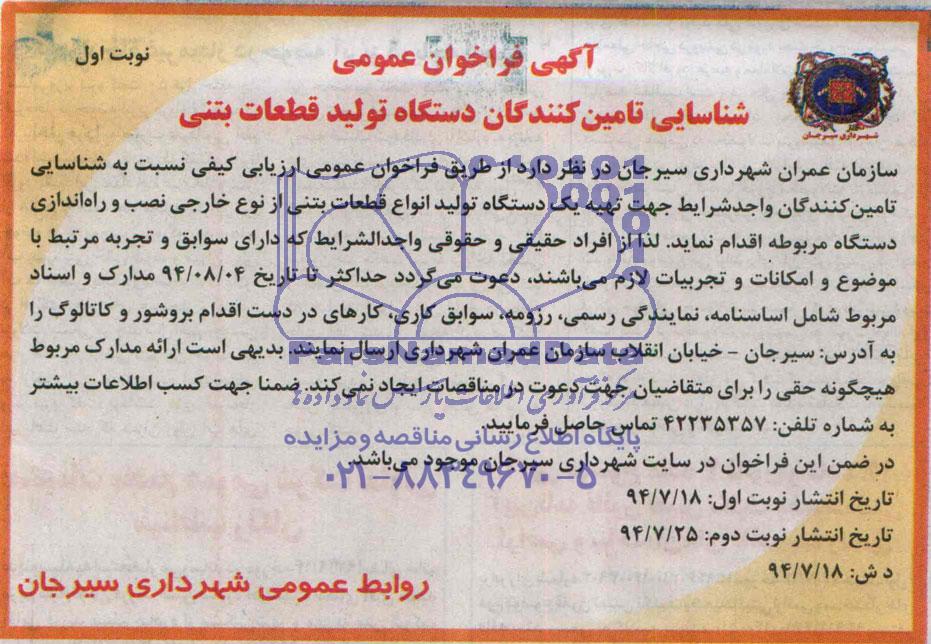 نوبت اول
آگهی فراخوان عمومی
شناسایی تامین‌کنندگان دستگاه تولید قطعات بتنی
شهرداری سیرجان
سازمان عمران شهرداری سیرجان در نظر دارد از طریق فراخوان عمومی ارزیابی کیفی نسبت به شناسایی
تامین‌کنندگان واجدشرایط جهت تهیه یک دستگاه تولید انواع قطعات بتنی از نوع خارجی نصب و راه‌اندازی
دستگاه مربوطه اقدام نماید. لذا از افراد حقیقی و حقوقی واجدالشرایط که دارای سوابق و تجربه مرتبط با
موضوع و امکانات و تجربیات لازم می‌باشند، دعوت می‌گردد حداکثر تا تاریخ ۹۴/۰۸/۰۴ مدارک و اسناد
مربوط شامل اساسنامه، نمایندگی رسمی، رزومه، سوابق کاری، کارهای در دست اقدام بروشور و کاتالوگ را
به آدرس: سیرجان – خیابان انقلاب سازمان عمران شهرداری ارسال نمایند. بدیهی است ارائه مدارک مربوط
هیچگونه حقی را برای متقاضیان جهت دعوت در مناقصات ایجاد نمی‌کند. ضمنا جهت کسب اطلاعات بیشتر
به شماره تلفن: ۴۲۲۳۵۳۵۷ تماس حاصل فرمایید.
در ضمن این فراخوان در سایت شهرداری سیرجان موجود می‌باشد.
تاریخ انتشار نوبت اول: ۹۴/۷/۱۸
تاریخ انتشار نوبت دوم: ۹۴/۷/۲۵
د ش: ۹۴/۷/۱۸
روابط عمومی شهرداری سیرجان
ParsNamadData
مرکز فرآوری اطلاعات پارس نماد داده‌ها
پایگاه اطلاع رسانی مناقصه و مزایده
۰۲۱-۸۸۳۴۹۶۷۰-۵